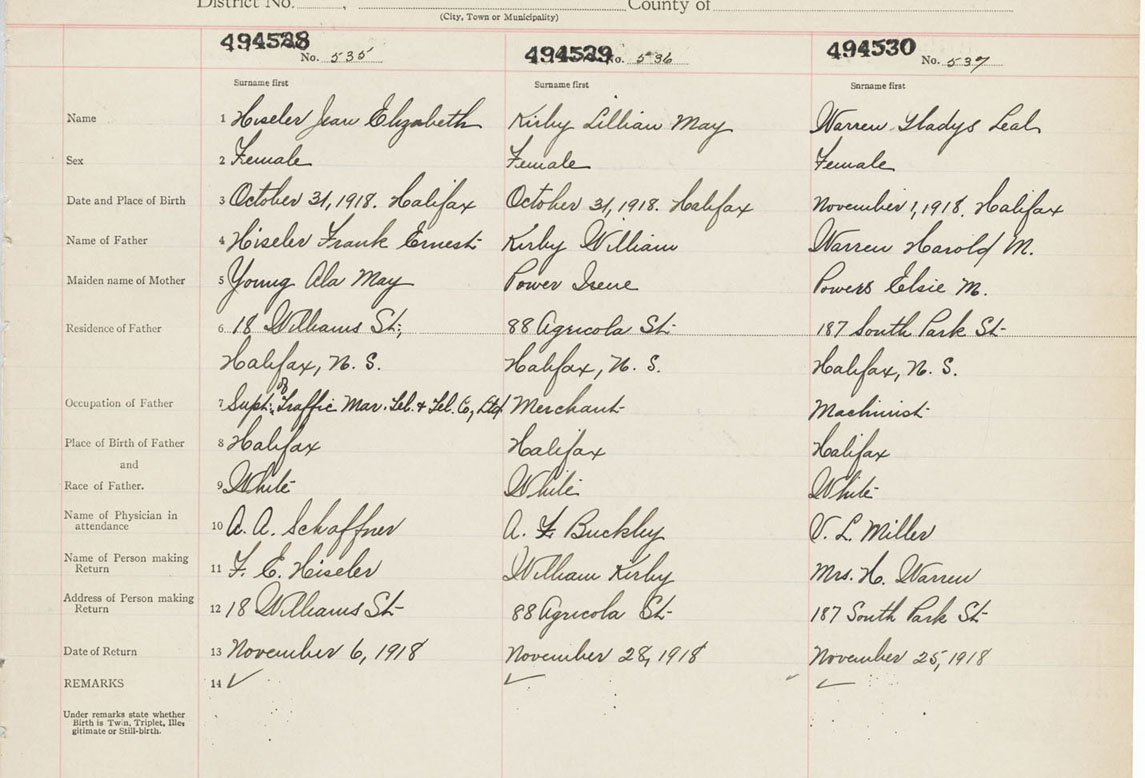 District No. , County of
(City, Town or Municipality)
494528 494529 494530
No. 535 No. 536 No. 537
Surname first Surname first Surname first
Name 1 Hiseler Jean Elizabeth Kirby Lillian May Warren Gladys Leal
Sex 2 Female Female Female
Date and Place of Birth 3 October 31, 1918. Halifax October 31, 1918. Halifax November 1, 1918. Halifax
Name of Father 4 Hiseler Frank Ernest Kirby William Warren Harold M.
Maiden name of Mother 5 Young Ala May Power Irene Powers Elsie M.
Residence of Father 6 18 Williams St; 88 Agricola St- 187 South Park St-
Halifax, N. S. Halifax, N. S. Halifax, N. S.
of
Occupation of Father 7 Supt: Traffic Mar. Tel. & Tel. Co, Ltd Merchant Machinist
Place of Birth of Father 8 Halifax Halifax Halifax
and
Race of Father. 9 White White White
Name of Physician in
attendance 10 A. A. Schaffner A. F. Buckley V. L. Miller
Name of Person making
Return 11 F. E. Hiseler William Kirby Mrs. H. Warren
Address of Person making
Return 12 18 Williams St- 88 Agricola St- 187 South Park St-
Date of Return 13 November 6, 1918 November 28, 1918 November 25, 1918
REMARKS 14 ✓ ✓ ✓
Under remarks state whether
Birth is Twin, Triplet, Ille-
gitimate or Still-birth.